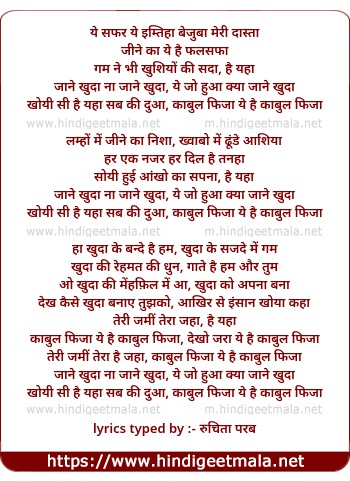 ये सफर ये इम्तिहा बेजुबा मेरी दास्ता
जीने का ये है फलसफा
गम ने भी खुशियों की सदा, है यहा
जाने खुदा ना जाने खुदा, ये जो हुआ क्या जाने खुदा
खोयी सी है यहा सब की दुआ, काबुल फिजा ये है काबुल फिजा
www.hindigeetmala.net m.hindigeetmala.net
लम्हों में जीने का निशा, ख्वाबो में ढूंडे आशिया
हर एक नजर हर दिल है तनहा
सोयी हुई आंखो का सपना, है यहा
जाने खुदा ना जाने खुदा, ये जो हुआ क्या जाने खुदा
खोयी सी है यहा सब की दुआ, काबुल फिजा ये है काबुल फिजा
www.hindigeetmala.net m.hindigeetmala.net
हा खुदा के बन्दे है हम, खुदा के सजदे में गम
खुदा की रेहमत की धुन, गाते है हम और तुम
ओ खुदा की मेंहफ़िल में आ, खुदा को अपना बना
देख कैसे खुदा बनाए तुझको, आखिर से इंसान खोया कहा
तेरी जमीं तेरा जहा, है यहा
काबुल फिजा ये है काबुल फिजा, देखो जरा ये है काबुल फिजा
तेरी जमीं तेरा है जहा, काबुल फिजा ये है काबुल फिजा
जाने खुदा ना जाने खुदा, ये जो हुआ क्या जाने खुदा
खोयी सी है यहा सब की दुआ, काबुल फिजा ये है काबुल फिजा
www.hindigeetmala.net m.hindigeetmala.net
lyrics typed by :- रुचिता परब
https://www.hindigeetmala.net